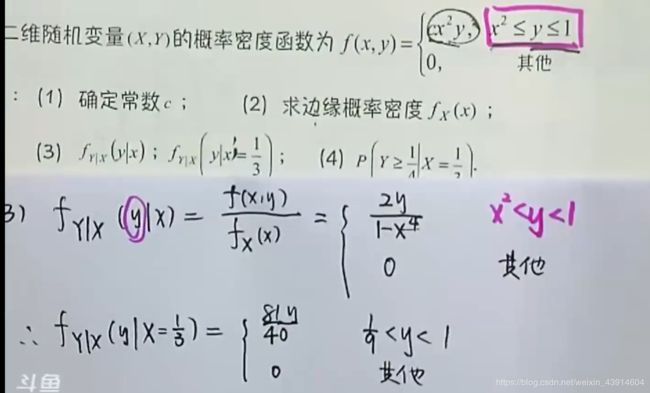 二维随机变量(X,Y)的概率密度函数为 f(x,y)={cx²y, x²≤y≤1
0, 其他
: (1) 确定常数c; (2) 求边缘概率密度 f_X(x);
(3) f_{Y|X}(y|x); f_{Y|X}(y|x=1/3); (4) P(Y≥1/4|X=1/2).
3) f_{Y|X}(y|x)= f(x,y)/f_X(x) = { 2y/(1-x⁴) x²<y<1
0 其他
∴ f_{Y|X}(y|X=1/3)= { 81y/40 1/9<y<1
0 其他
斗鱼 https://blog.csdn.net/weixin_43914604